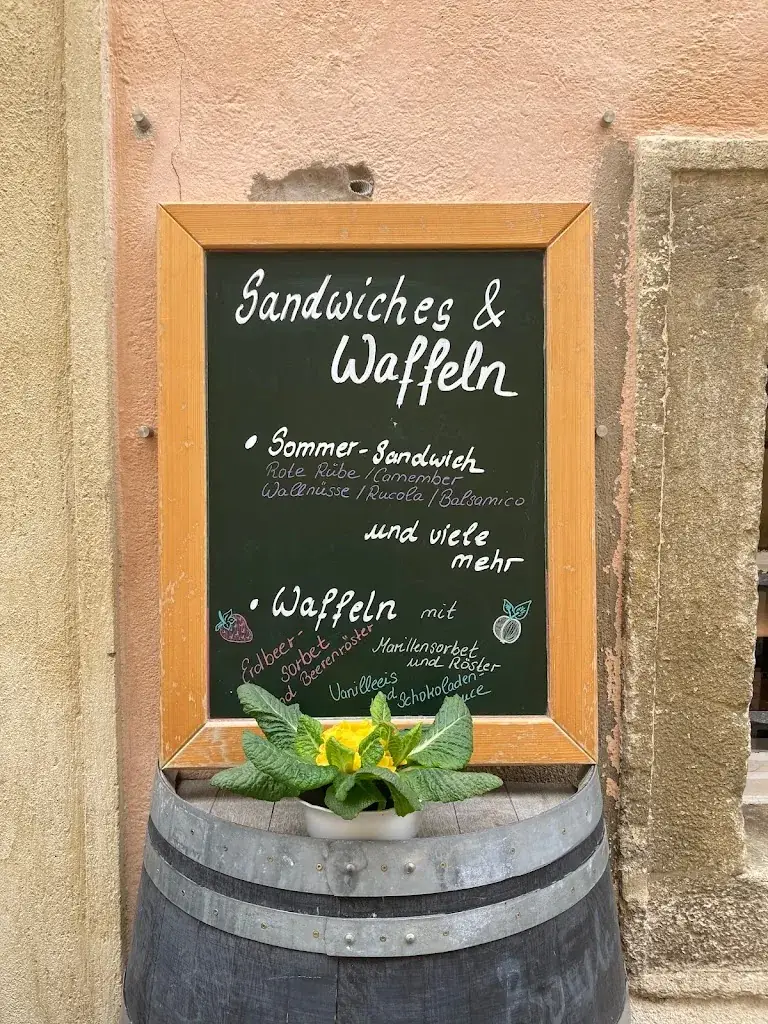 Sandwiches &
Waffeln
• Sommer-Sandwich
Rote Rübe / Camember
Wallnüsse / Rucola / Balsamico
und viele
mehr
• Waffeln mit
Erdbeer-
sorbet
nd Beerenröster
Marillensorbet
und Röster
Vanilleeis
d Schokoladen-
uce